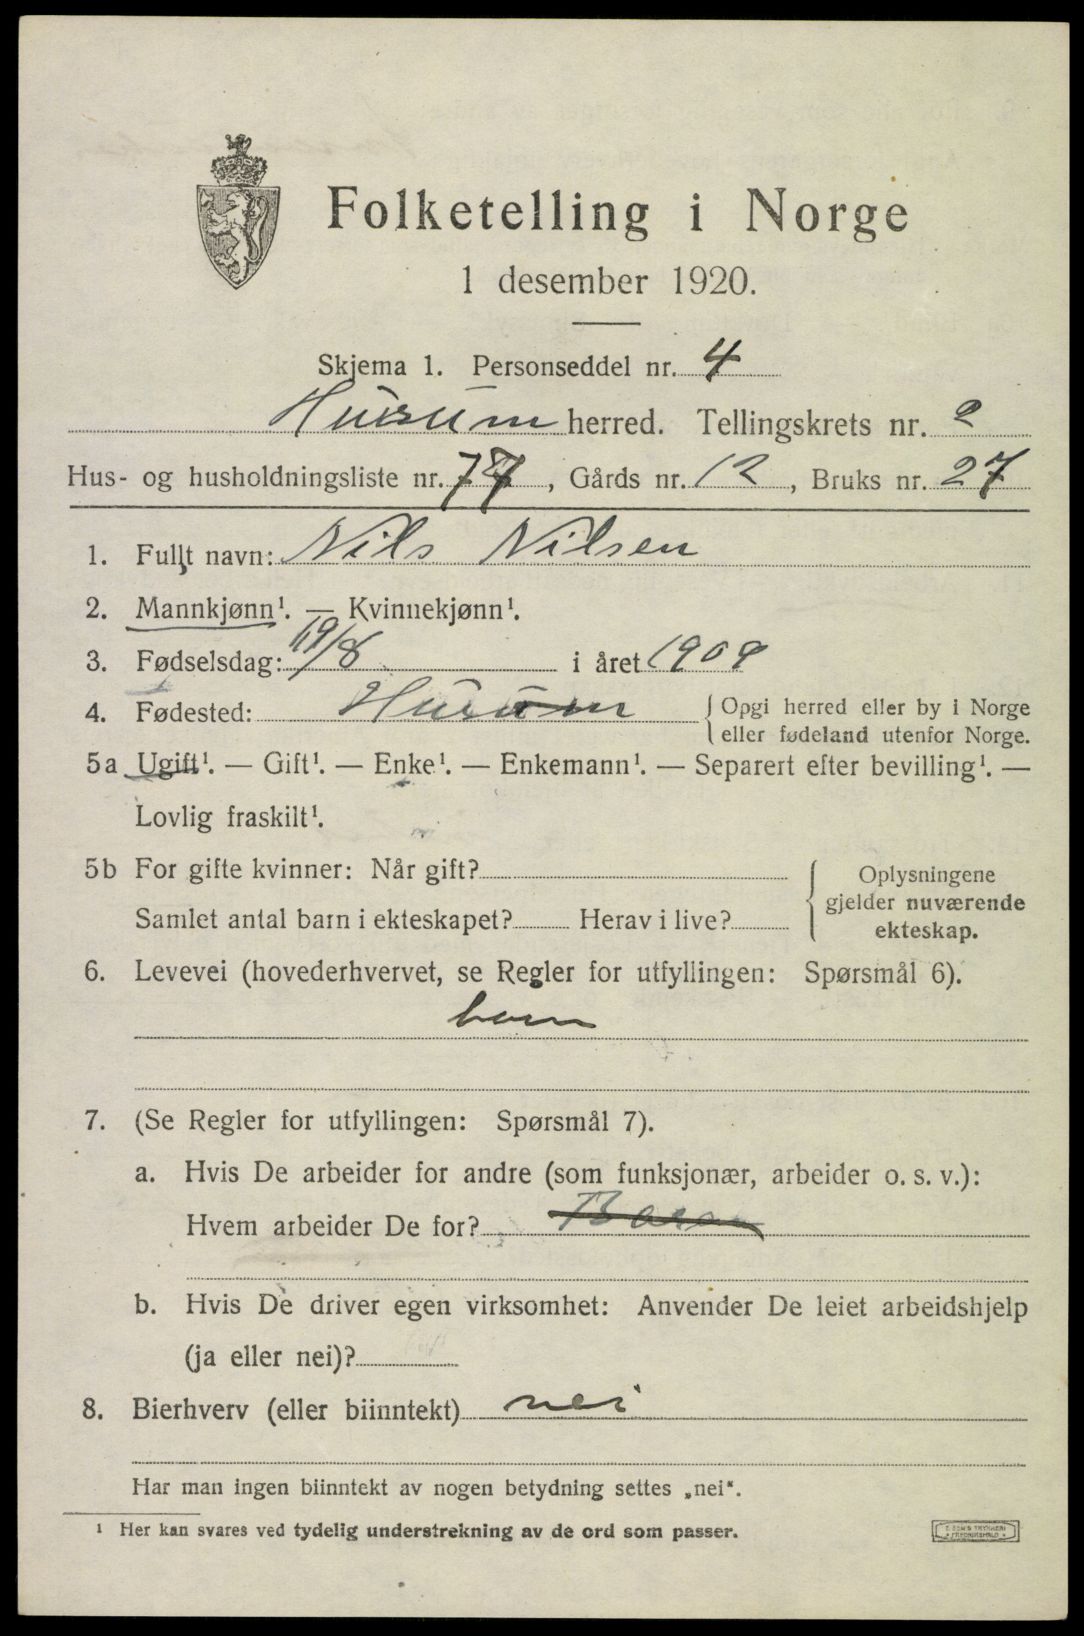 Folketelling i Norge
1 desember 1920.
Skjema 1. Personseddel nr. 4
Hurum herred. Tellingskrets nr. 2
Hus- og husholdningsliste nr. 77, Gårds nr. 12, Bruks nr. 27
1. Fullt navn: Nils Nilsen
2. Mannkjønn¹. — Kvinnekjønn¹.
3. Fødselsdag: 19/8 i året 1909
4. Fødested: Hurum { Opgi herred eller by i Norge
eller fødeland utenfor Norge.
5a Ugift¹. — Gift¹. — Enke¹. — Enkemann¹. — Separert efter bevilling¹. —
Lovlig fraskilt¹.
5b For gifte kvinner: Når gift? { Oplysningene
Samlet antal barn i ekteskapet? Herav i live? gjelder nuværende
ekteskap.
6. Levevei (hovederhvervet, se Regler for utfyllingen: Spørsmål 6).
barn
7. (Se Regler for utfyllingen: Spørsmål 7).
a. Hvis De arbeider for andre (som funksjonær, arbeider o. s. v.):
Hvem arbeider De for?
b. Hvis De driver egen virksomhet: Anvender De leiet arbeidshjelp
(ja eller nei)?
8. Bierhverv (eller biinntekt) nei
Har man ingen biinntekt av nogen betydning settes „nei“.
¹ Her kan svares ved tydelig understrekning av de ord som passer.